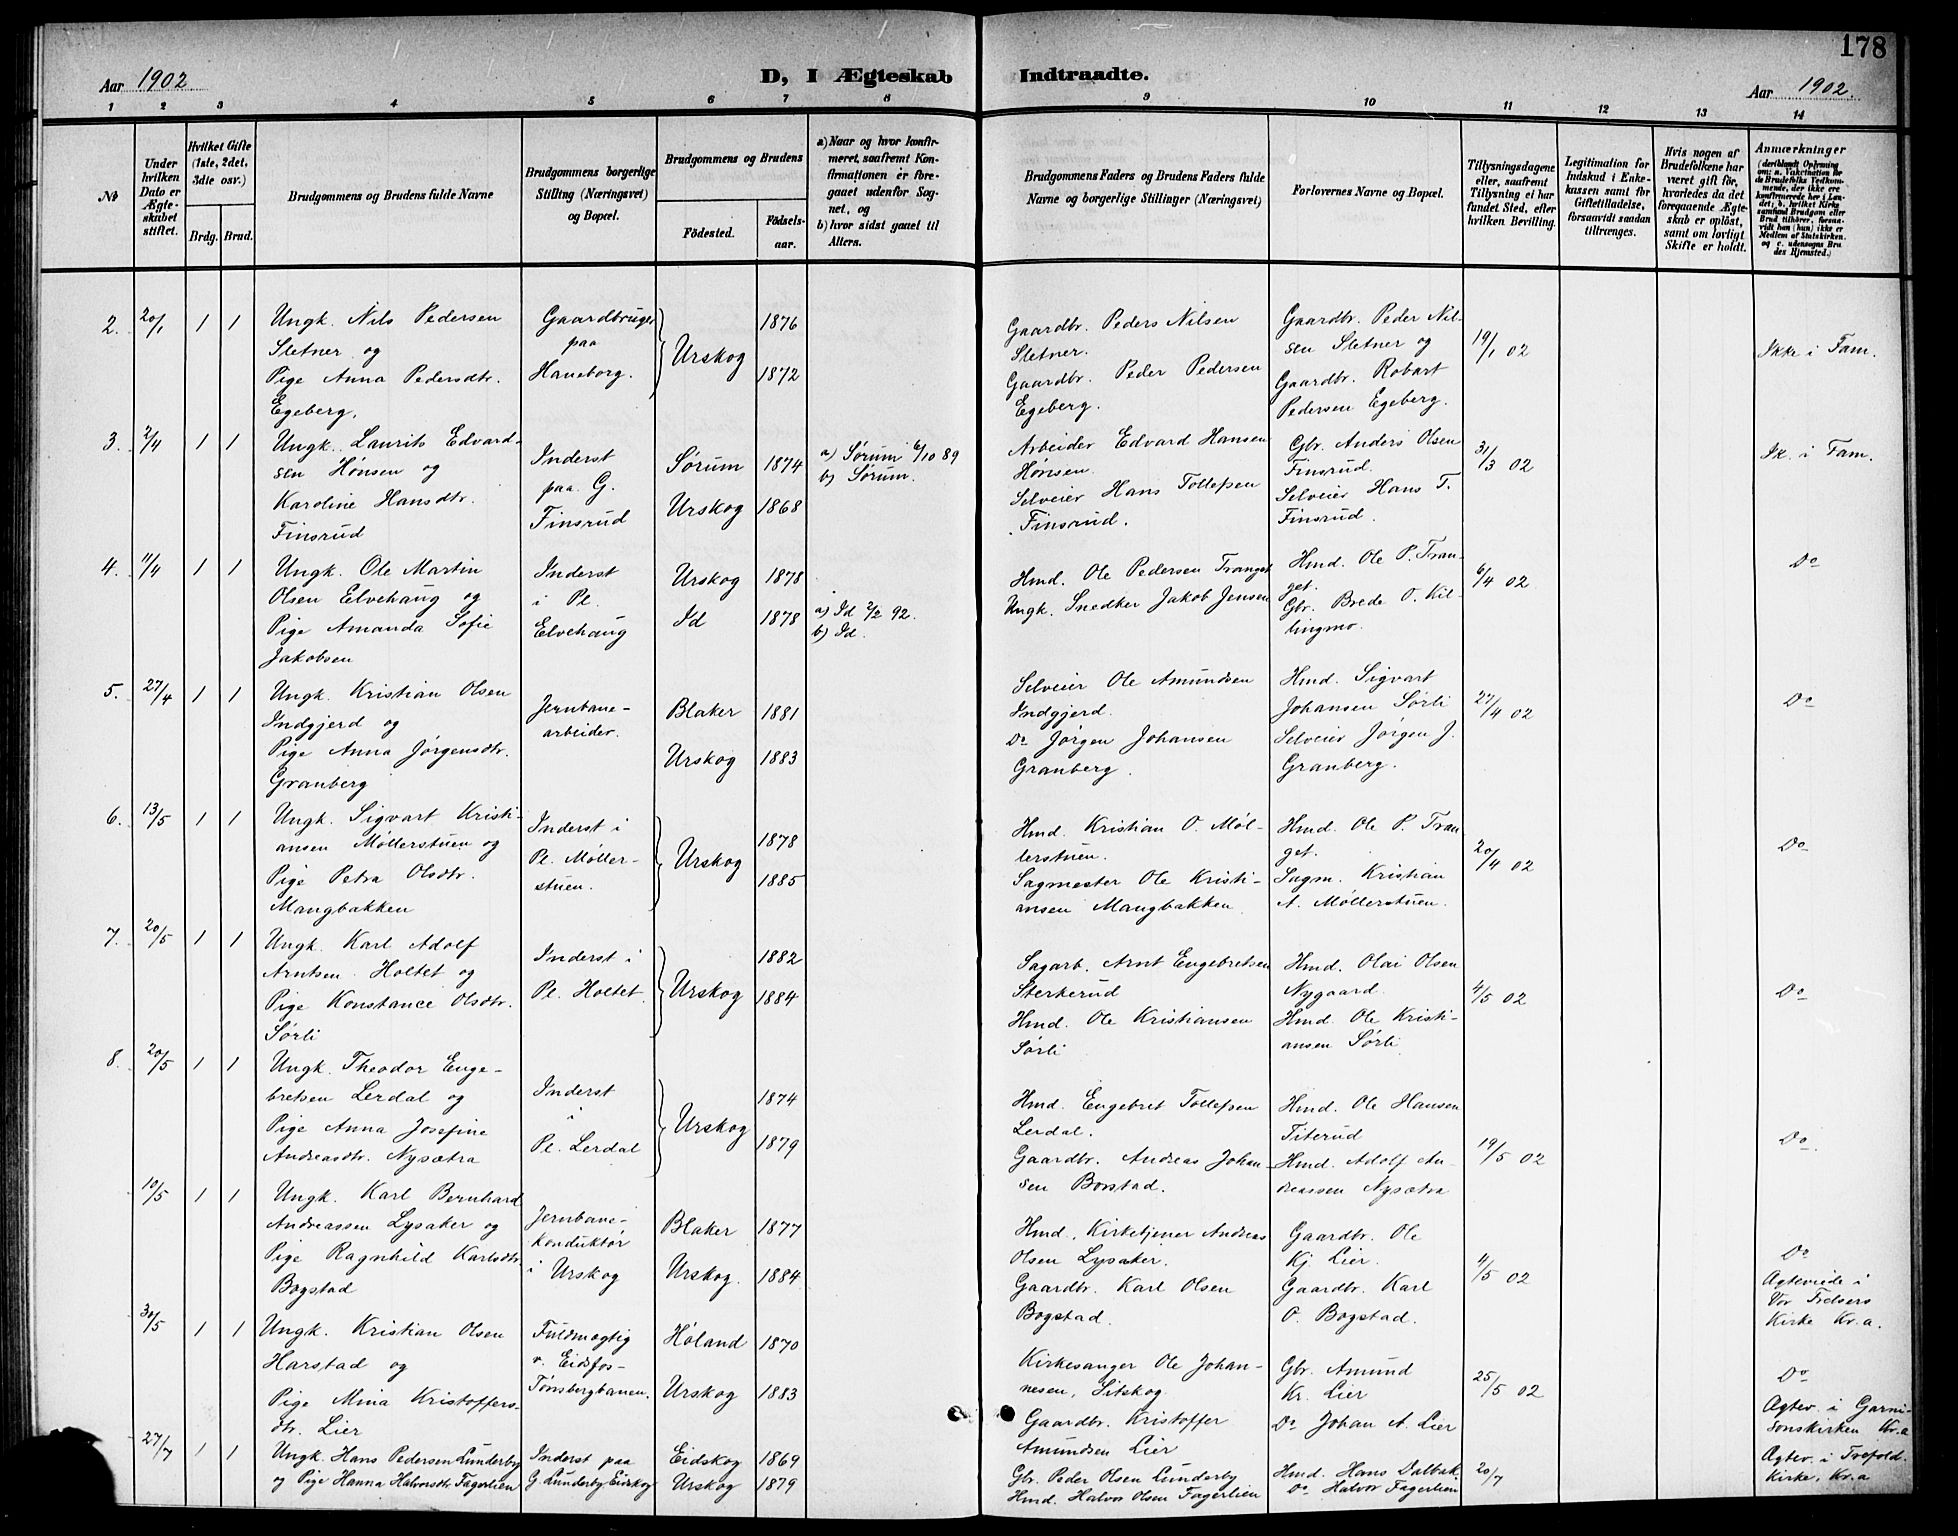 178
Aar 1902
D, I Ægteskab Indtraadte.
Aar 1902.
1 2 3 4 5 6 7 8 9 10 11 12 13 14
No
Under hvilken Dato er Ægteskabet stiftet.
Hvilket Gifte (1ste, 2det, 3die osv.)
Brdg. Brud.
Brudgommens og Brudens fulde Navne
Brudgommens borgerlige Stilling (Næringsvei) og Bopæl.
Brudgommens og Brudens
Födested.
Födselsaar.
a) Naar og hvor konfirmeret, saafremt Konfirmationen er foregaaet udenfor Sognet, og
b) hvor sidst gaaet til Alters.
Brudgommens Faders og Brudens Faders fulde Navne og borgerlige Stillinger (Næringsvei)
Forlovernes Navne og Bopæl.
Tillysningsdagene eller, saafremt Tillysning ei har fundet Sted, efter hvilken Bevilling.
Legitimation for Indskud i Enkekassen samt for Giftetilladelse, forsaavidt saadan tiltrænges.
Hvis nogen af Brudefolkene har været gift før, hvorledes da det foregaaende Ægteskab er oplöst, samt om lovligt Skifte er holdt.
Anmærkninger
2. 20/1 1 1
Ungk. Nils Pedersen
Sletner og
Pige Anna Pedersdtr.
Egeberg,
Gaardbruger
paa
Haneborg.
Urskog
1876
1872
Gaardbr. Peders Nilsen
Sletner.
Gaardbr. Peder Pedersen
Egeberg.
Gaardbr. Peder Nil-
sen Sletner og
Gaardbr. Robart
Pedersen Egeberg.
19/1 02
Ikke i Fam.
3. 2/4 1 1
Ungk. Laurits Edvard-
sen Hønsen og
Karoline Hansdtr.
Finsrud
Inderst
paa G.
Finsrud
Sørum 1874
Urskog 1868
a) Sørum 6/10 89
b) Sørum.
Arbeider Edvard Hansen
Hønsen.
Selveier Hans Tollefsen
Finsrud.
Gbr. Anders Olsen
Finsrud.
Selveier Hans T.
Finsrud.
31/3 02
Ik. i Fam.
4. 11/4 1 1
Ungk. Ole Martin
Olsen Elvehaug og
Pige Amanda Sofie
Jakobsen
Inderst
i Pl.
Elvehaug
Urskog 1878
Id 1878
a) Id 2/2 92.
b) Id.
Hmd. Ole Pedersen Tranget
Ungk. Snedker Jakob Jensen
Hmd. Ole P. Tran-
get.
Gbr. Brede O. Kil-
lingmo.
6/4 02
Do
5. 27/4 1 1
Ungk. Kristian Olsen
Indgjerd og
Pige Anna Jørgensdtr.
Granberg
Jernbane-
arbeider.
Blaker 1881
Urskog 1883
Selveier Ole Amundsen
Indgjerd.
Do Jørgen Johansen
Granberg.
Hmd. Sigvart
Johansen Sørli
Selveier Jørgen J.
Granberg.
27/4 02
Do
6. 13/5 1 1
Ungk. Sigvart Kristi-
ansen Møllerstuen og
Pige Petra Olsdtr.
Mangbakken
Inderst i
Pl. Møller-
stuen.
Urskog
1878
1885
Hmd. Kristian O. Møl-
lerstuen.
Sagmester Ole Kristi-
ansen Mangbakken
Hmd. Ole P. Tran
get.
Sagm. Kristian
A. Møllerstuen.
20/4 02
Do
7. 20/5 1 1
Ungk. Karl Adolf
Arntsen Holtet og
Pige Konstance Olsdtr.
Sørli
Inderst i
Pl. Holtet
Urskog
1882
1884
Sagarb. Arnt Engebretsen
Sterkerud
Hmd. Ole Kristiansen
Sørli
Hmd. Olai Olsen
Nygaard.
Hmd. Ole Kristi-
ansen Sørli
4/5 02
Do
8. 20/5 1 1
Ungk. Theodor Enge-
bretsen Lerdal og
Pige Anna Josefine
Andreasdtr. Nysætra
Inderst
i
Pl. Lerdal
Urskog
1874
1879
Hmd. Engebret Tollefsen
Lerdal.
Gaardbr. Andreas Johan-
sen Borstad.
Hmd. Ole Hansen
Titerud
Hmd. Adolf An-
dreassen Nysætra
19/5 02
Do
10/5 1 1
Ungk. Karl Bernhard
Andreassen Lysaker og
Pige Ragnhild Karlsdtr.
Bogstad
Jernbane-
konduktør
i Urskog
Blaker 1877
Urskog. 1884
Hmd., Kirketjener Andreas
Olsen Lysaker.
Gaardbr. Karl Olsen
Bogstad.
Gaardbr. Ole
Kj. Lier.
Gaardbr. Karl
O. Bogstad.
4/5 02
Do
Agteviede i
Vor Frelsers
Kirke Kr.a.
30/5 1 1
Ungk. Kristian Olsen
Harstad og
Pige Mina Kristoffers-
dtr. Lier
Fuldmægtig
v. Eidsfos-
Tønsbergbanen.
Høland 1870
Urskog 1883
Kirkesanger Ole Johan-
nesen, Sitskog
Gaardbr. Kristoffer
Amundsen Lier
Gbr. Amund
Kr. Lier
Do Johan A. Lier
25/5 02
Do
Agtev. i Garni-
sonskirken Kr.a
27/7 1 1
Ungk. Hans Pedersen Lunderby
og Pige Hanna Halvorsdtr. Fagerlien
Inderst paa
G Lunderby Eidskog
Eidskog 1869
Urskog 1879
Gbr. Peder Olsen Lunderby
Hmd. Halvor Olsen Fagerlien
Hmd. Hans Dalbak
Do Halvor Fagerlien
20/7
Agtev. i Trefold.
kirke, Kr.a